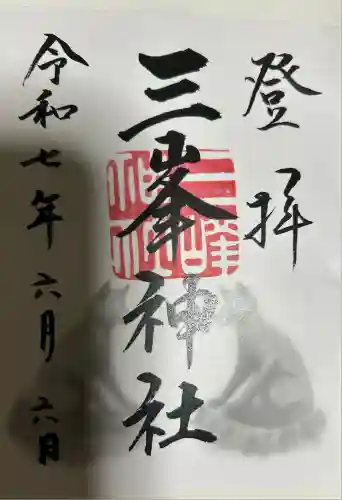 登拝
三峯神社
令和七年六月六日